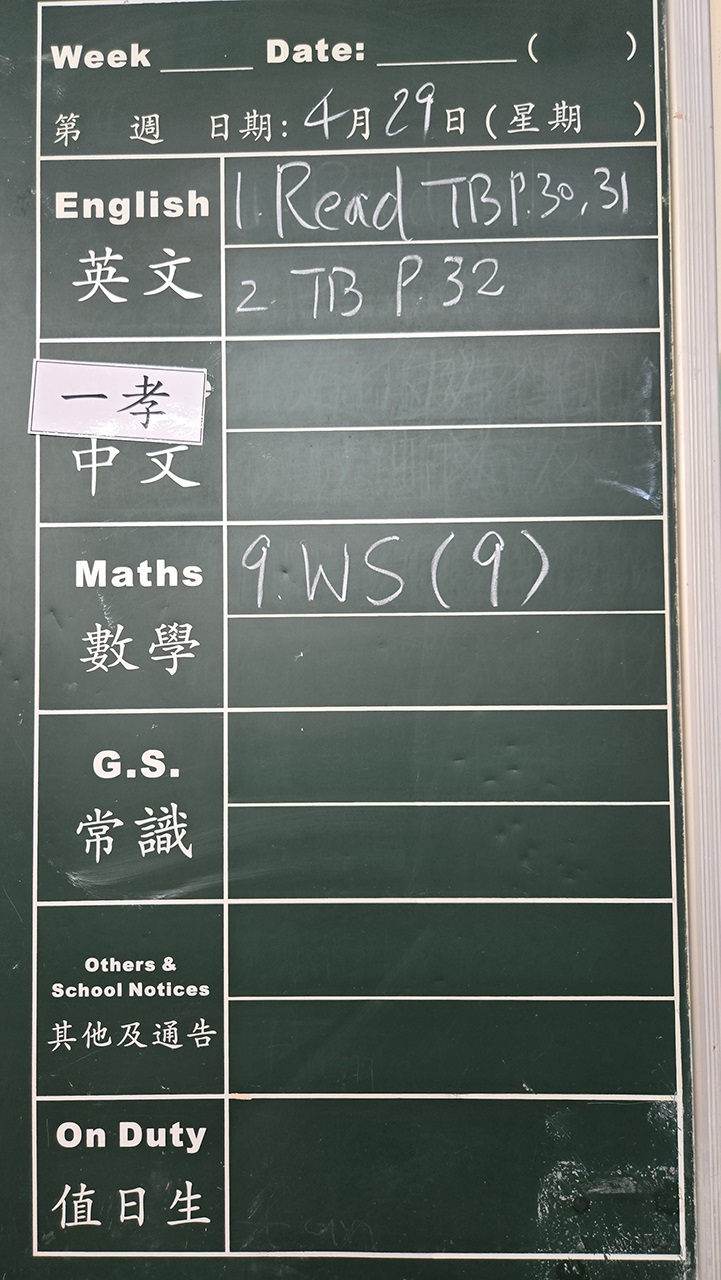 Week ____ Date: ______ ( )
第 週 日期: 4月29日 (星期 )
English 1. Read TB P.30, 31
英文 2. TB P.32
一孝
中文
Maths 9. WS (9)
數學
G.S.
常識
Others &
School Notices
其他及通告
On Duty
值日生